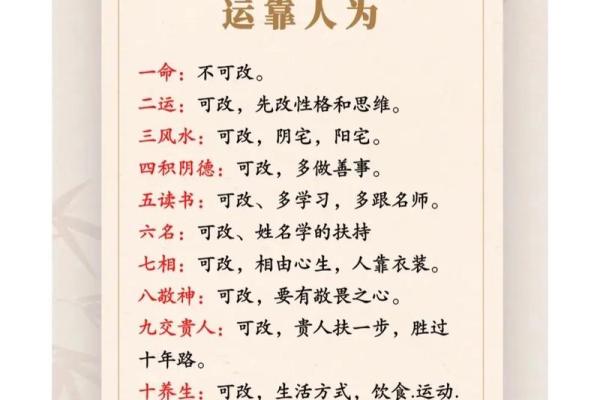 运靠人为
一命：不可改。
二运：可改，先改性格和思维。
三风水：可改，阴宅，阳宅。
四积阴德：可改，多做善事。
五读书：可改、多学习，多跟名师。
六名：可改、姓名学的扶持
七相：可改，相由心生，人靠衣装。
八敬神：可改，要有敬畏之心。
九交贵人：可改，贵人扶一步，胜过
十年路。
十养生：可改，生活方式，饮食.运动.